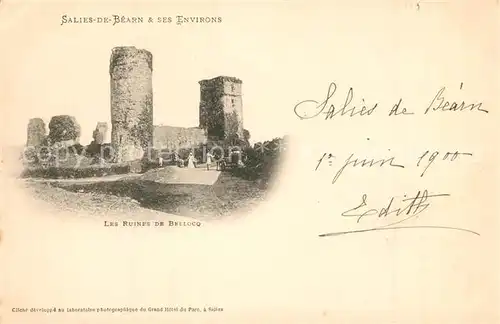 SALIES-DE-BÉARN & SES ENVIRONS
Salies de Béarn
1er juin 1900
Edith
LES RUINES DE BELLOCQ
Cliché développé au laboratoire photographique du Grand Hôtel du Parc, à Salies